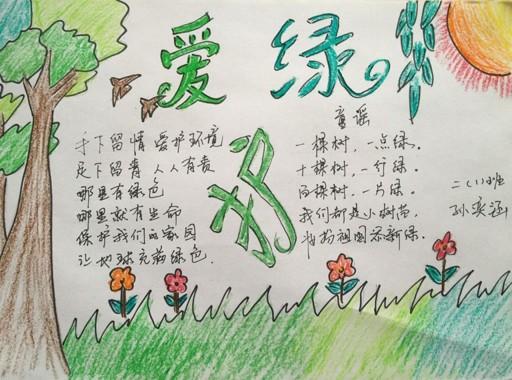 爱绿护
手下留情 爱护环境
足下留青 人人有责
哪里有绿色
哪里就有生命
保护我们的家园
让地球充满绿色.
童谣
一棵树，一点绿。
十棵树，一行绿。
百棵树，一片绿。
我们都是小树苗，
为祖国添新绿。
二（1）班